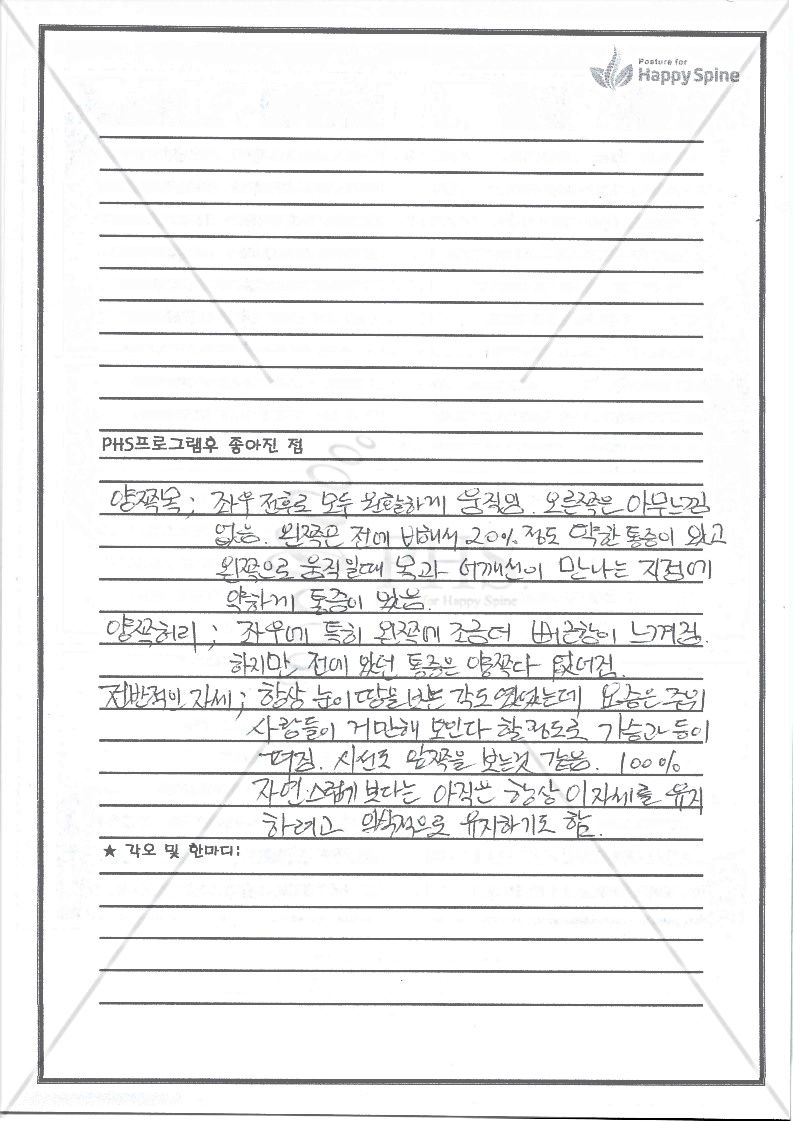 Posture for
Happy Spine
PHS프로그램후 좋아진 점
양쪽목 ; 좌우 전후로 모두 원활하게 움직임. 오른쪽은 아무느낌
없음. 왼쪽은 전에 비해서 20% 정도 약한 통증이 왔고
왼쪽으로 움직일때 목과 어깨선이 만나는 지점에
약하게 통증이 왔음.
양쪽허리 ; 좌우에 특히 왼쪽에 조금더 뻐근함이 느껴짐.
하지만 전에 왔던 통증은 양쪽다 없어짐.
전반적인 자세 ; 항상 눈이 땅을 보는 각도였었는데 요즘은 주위
사람들이 거만해 보인다 할정도로 가슴과 등이
펴짐. 시선도 앞쪽을 보는것 같음. 100%
자연스럽게 보다는 아직은 항상 이자세를 유지
하려고 의식적으로 유지하기도 함.
★ 각오 및 한마디:
PHS
for Happy Spine